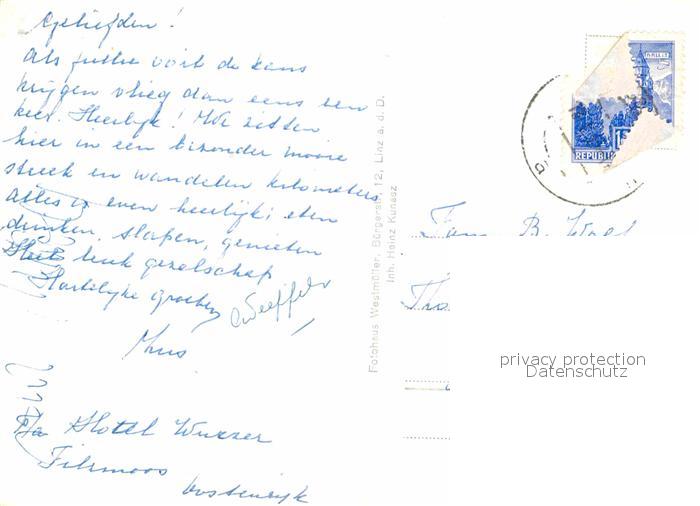 Geliefden!
Als jullie ooit de kans
krijgen vlieg dan eens een
keer. Heerlijk! We zitten
hier in een bizonder mooie
streek en wandelen kilometers
alles is even heerlijk; eten
drinken, slapen, genieten
leuk gezelschap
Hartelijke groeten
Hotel Wurzer
Filzmoos
Oostenrijk
Fotohaus Westmüller, Bürgerstr. 12, Linz a. d. D.
Inh. Heinz Kunasz
REPUBLIK
Fam. B.
privacy protection
Datenschutz